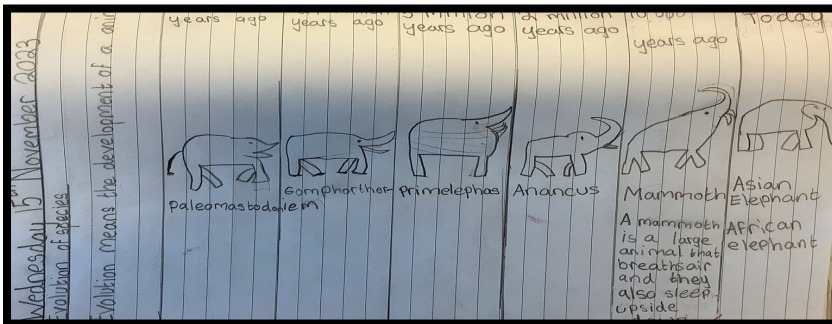 Wednesday 15th November 2023
Evolution of species
Evolution means the development of a
years ago
years ago
years ago
2 million
years ago
years ago
Today
Paleomastodon
Gomphortherium
Primelephas
Anancus
Mammoth
A mammoth
is a large
animal that
breaths air
and they
also sleep
upside
Asian
Elephant
African
elephant